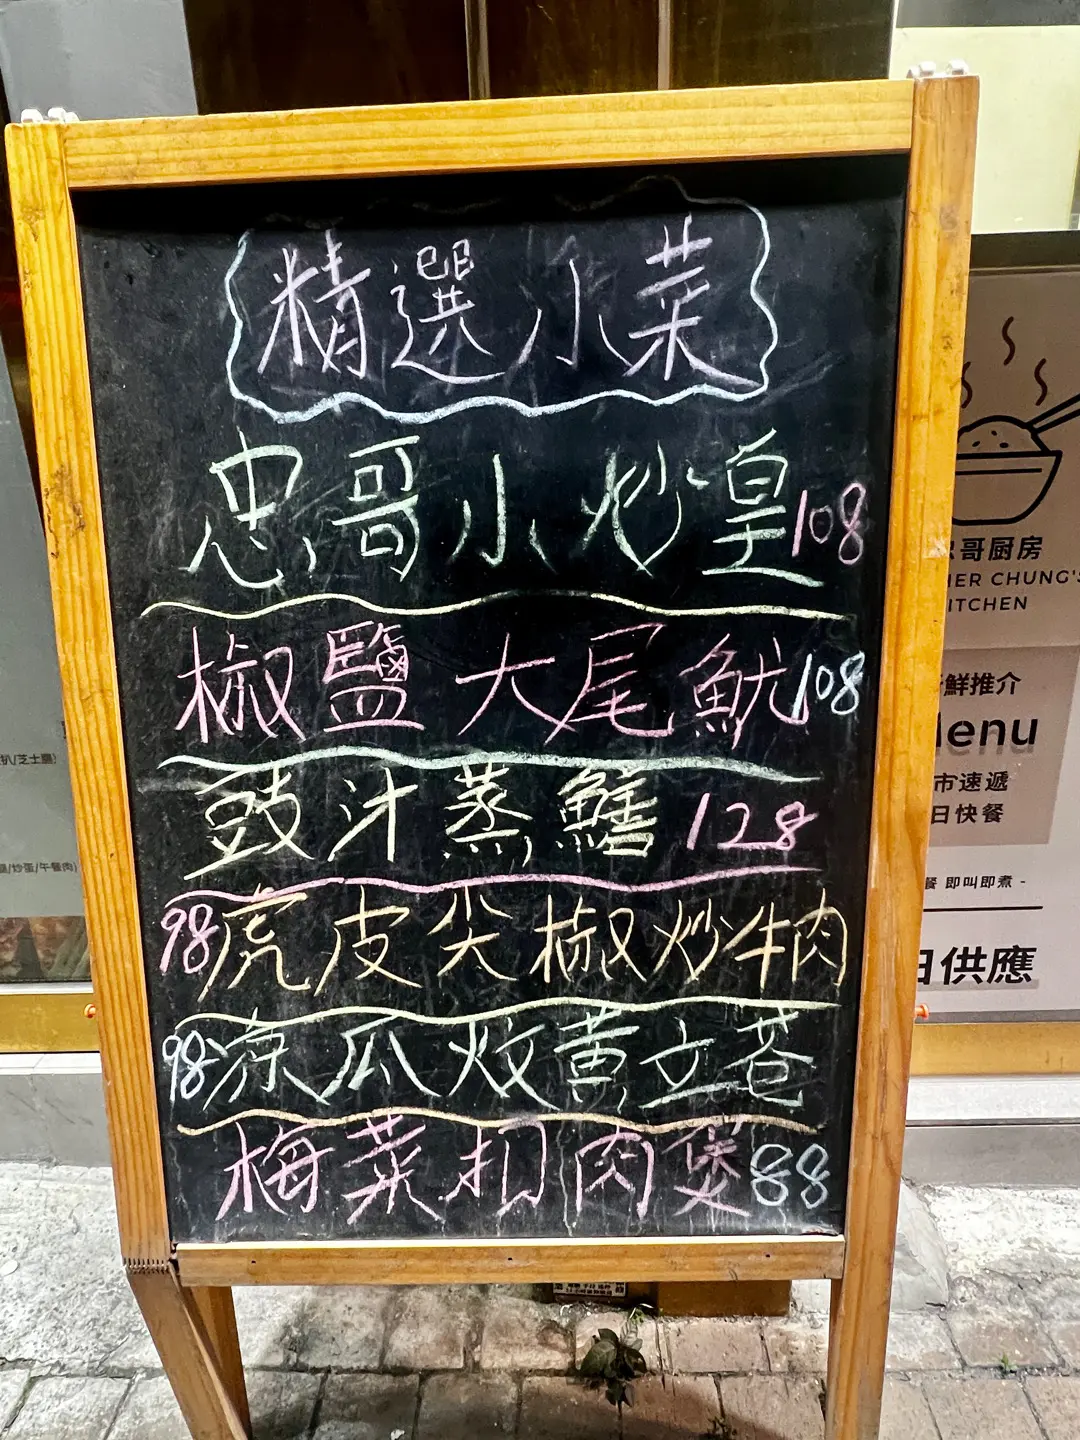 精選小菜
忠哥小炒皇108
椒鹽大尾魷108
豉汁蒸鱔128
98虎皮尖椒炒牛肉
98涼瓜炆黄立苍
梅菜扣肉煲88
哥厨房
HER CHUNG'S
ITCHEN
鮮推介
enu
市速遞
日快餐
餐 即叫即煮 -
日供應
扒/芝士腸
/炒蛋/午餐肉)